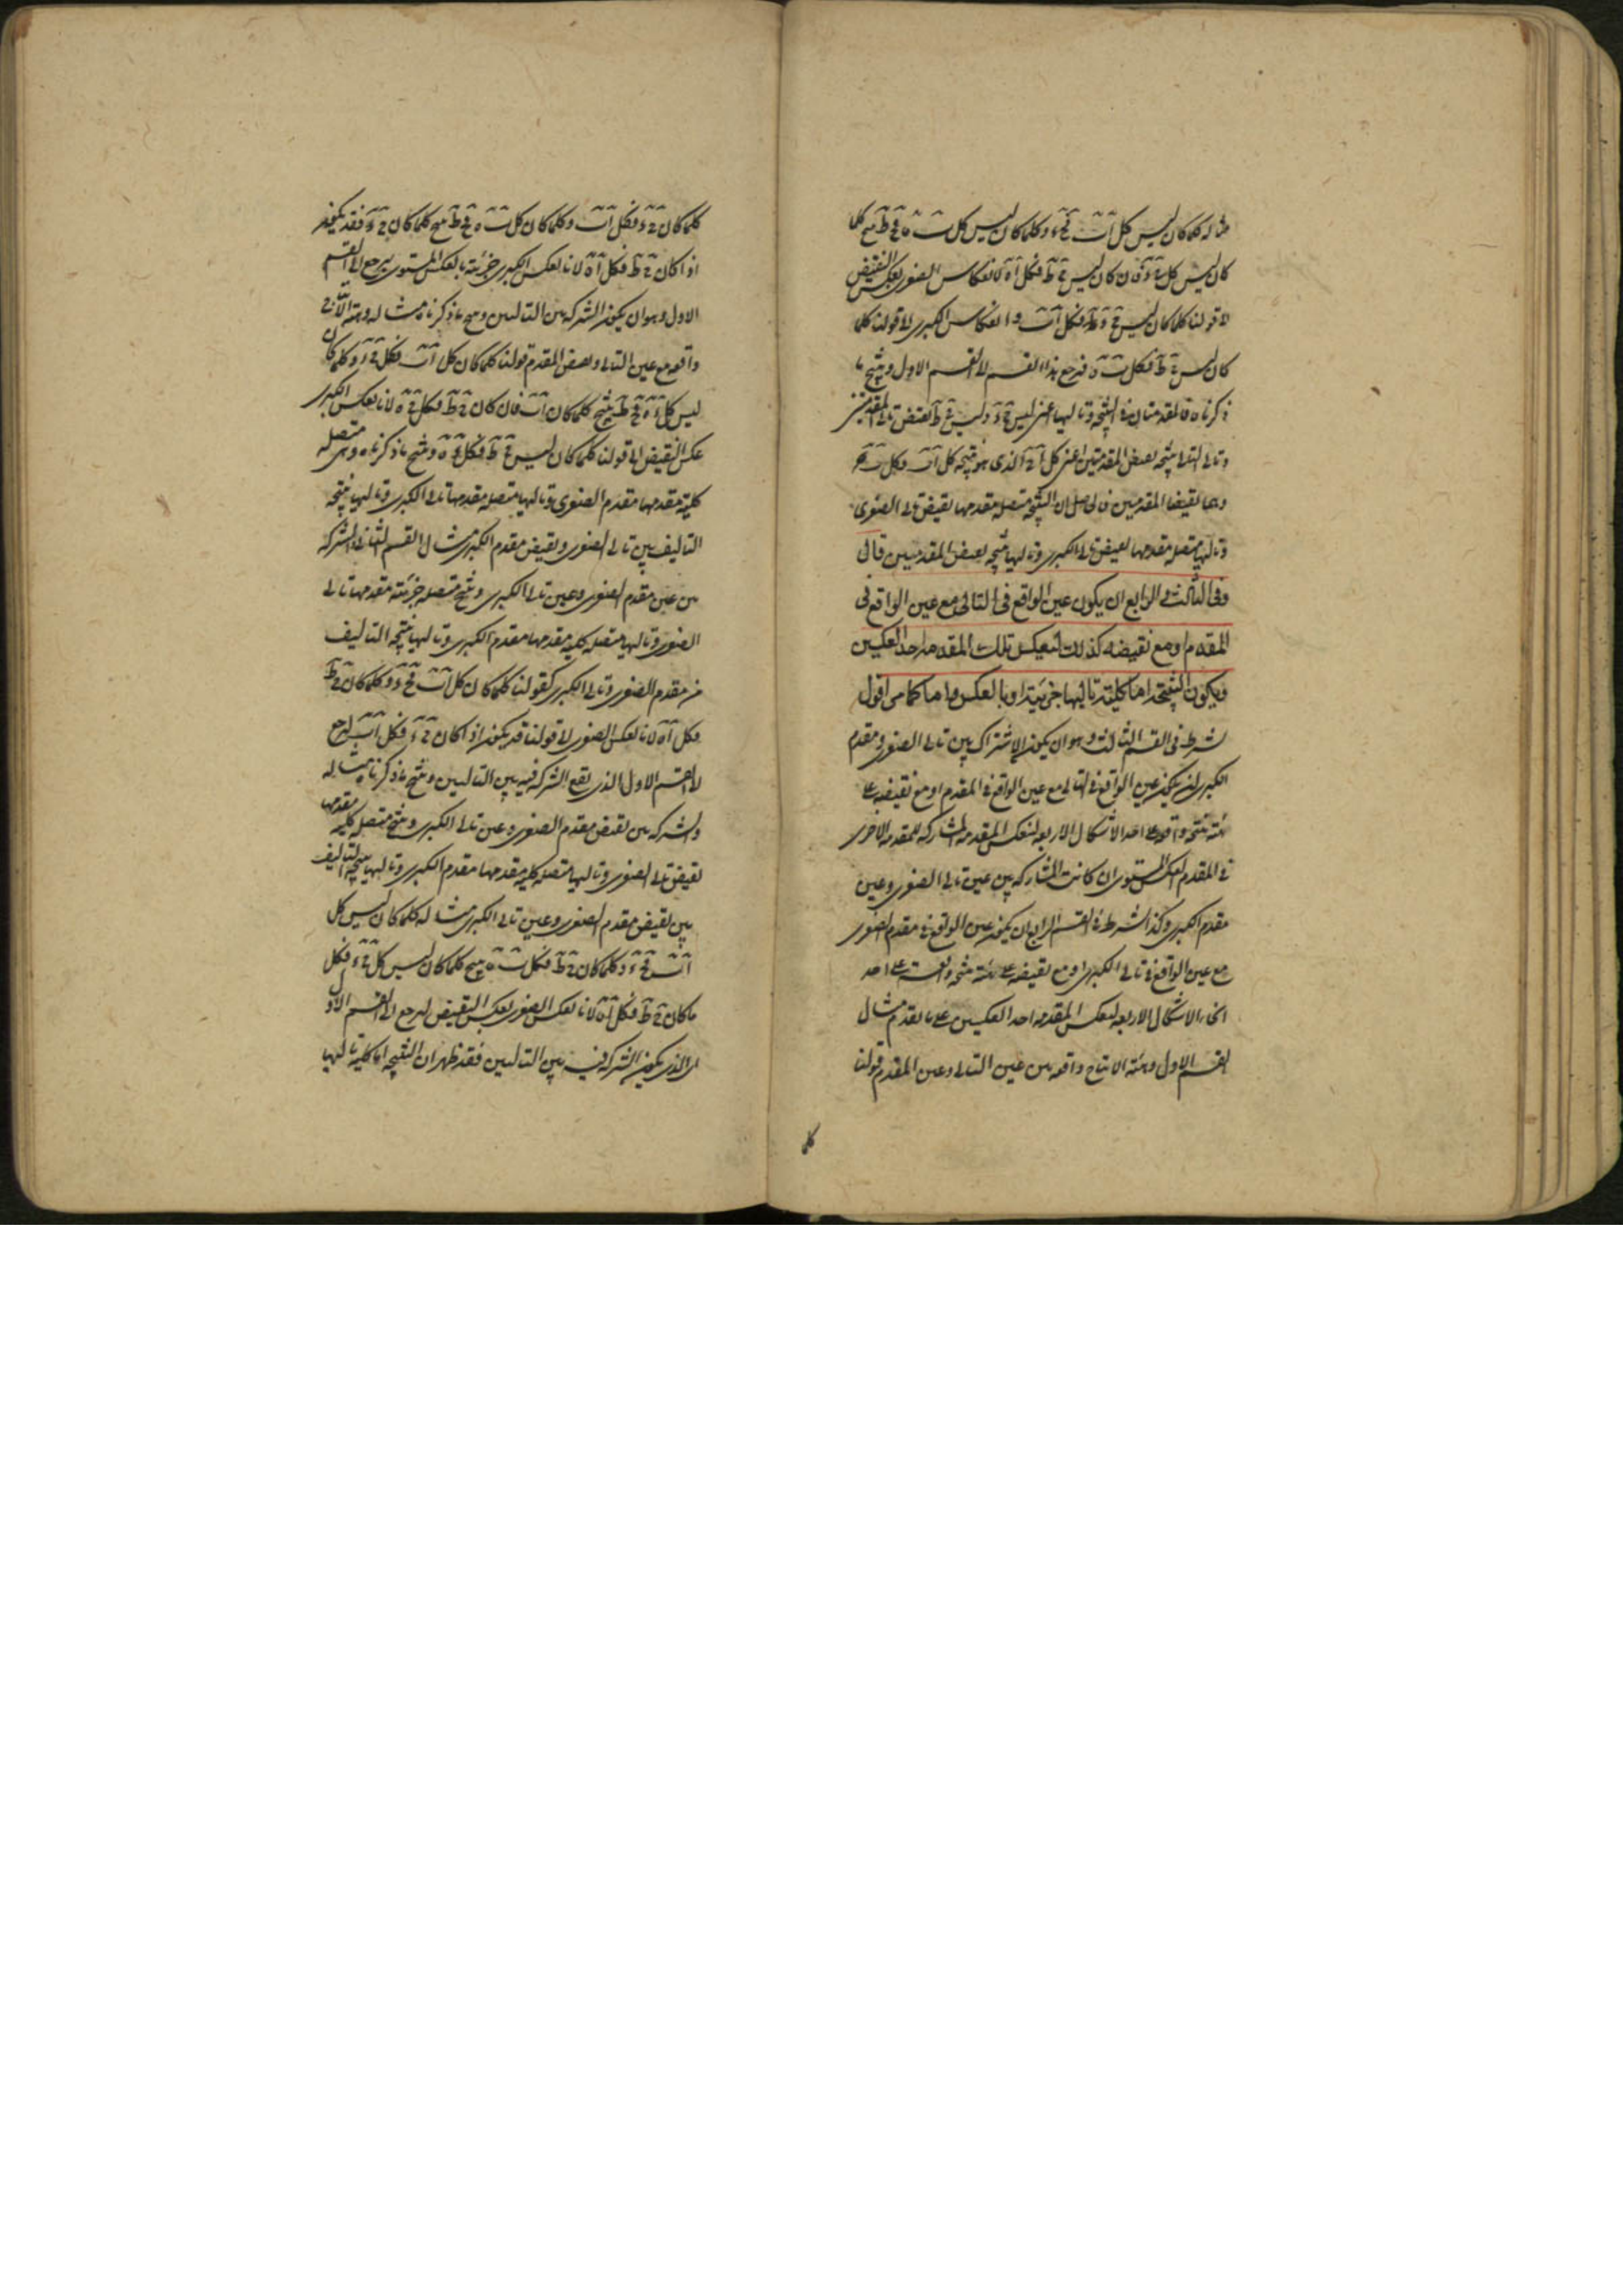 مثاله كلما كان ليس كل اب فج د وكلما كان ليس كل ب ه فج ط ينتج كلما
كان ليس كل ج د فان كان ليس ج ط فكل ا ه لانعكاس الصغرى بعكس النقيض
الى قولنا كلما كان ليس ج د فكل اب وانعكاس الكبرى الى قولنا كلما
كان ليس ج ط فكل ب ه فيرجع هذا القسم الى القسم الاول وينتج ما
ذكرناه فالمقدمتان في النتيجة وتاليها اعني ليس ج د وليس ج ط نقيض تالي المقدمتين
وتالي التالي نتيجة نقيض المقدمتين اعني كل ا ه الذي هو نتيجة كل اب وكل ب ه
وهما نقيضا المقدمين فالحاصل ان النتيجة متصلة مقدمها نقيض تالي الصغرى
وتاليها متصلة مقدمها نقيض تالي الكبرى وتاليها نتيجة نقيض المقدمين قال
وفى الثالث فى الرابع ان يكون عين الواقع فى التالى مع عين الواقع فى
المقدم او مع نقيضه كذلك لتعكس تلك المقدمة احد العكسين
ويكون النتيجة اما كلية تاليها جزئية او بالعكس واما كما مر اقول
شرط في القسم الثالث وهو ان يكون الاشتراك بين تالي الصغرى ومقدم
الكبرى ان يكون عين الواقع في التالي مع عين الواقع في المقدم او مع نقيضه على
هيئة منتجة واقعة على احد الاشكال الاربعة لتعكس المقدمة المشاركة للمقدمة الاخرى
في المقدم العكس المستوى ان كانت المشاركة بين عين تالي الصغرى وعين
مقدم الكبرى وكذا شرط في القسم الرابع ان يكون عين الواقع في مقدم الصغرى
مع عين الواقع في تالي الكبرى او مع نقيضه على هيئة منتجة واقعة على احد
انحاء الاشكال الاربعة لتعكس المقدمة احد العكسين على ما تقدم مثال
القسم الاول وهيئة الانتاج واقعة بين عين التالي وعين المقدم قولنا
كلما
كلما كان ج د فكل اب وكلما كان كل ب ه فج ط ينتج كلما كان ج د فقد يكون
اذا كان ج ط فكل ا ه لانا نعكس الكبرى جزئية بالعكس المستوى ليرجع الى القسم
الاول وهو ان يكون الشركة بين التاليين وينتج ما ذكرناه مثاله وهيئة الانتاج
واقعة مع عين التالي ونقيض المقدم قولنا كلما كان كل اب فكل ج د وكلما كان
ليس كل د ه فج ط ينتج كلما كان اب فان كان ج ط فكل ج ه لانا نعكس الكبرى
عكس النقيض الى قولنا كلما كان ليس ج ط فكل د ه وينتج ما ذكرناه وهي متصلة
كلية مقدمها مقدم الصغرى وتاليها متصلة مقدمها تالي الكبرى وتاليها نتيجة
التاليف بين تالي الصغرى ونقيض مقدم الكبرى مثال القسم الثاني والشركة
بين عين مقدم الصغرى وعين تالي الكبرى وينتج متصلة جزئية مقدمها تالي
الصغرى وتاليها متصلة كلية مقدمها مقدم الكبرى وتاليها نتيجة التاليف
من مقدم الصغرى وتالي الكبرى كقولنا كلما كان كل اب فج د وكلما كان ج ط
فكل ا ه لانا نعكس الصغرى الى قولنا قد يكون اذا كان ج د فكل اب ليرجع
الى القسم الاول الذي تقع الشركة فيه بين التاليين وينتج ما ذكرناه مثاله
والشركة بين نقيض مقدم الصغرى وعين تالي الكبرى وينتج متصلة كلية مقدمها
نقيض تالي الصغرى وتاليها متصلة كلية مقدمها مقدم الكبرى وتاليها نتيجة التاليف
بين نقيض مقدم الصغرى وعين تالي الكبرى مثاله كلما كان ليس كل
اب فج د وكلما كان ج ط فكل ب ه ينتج كلما كان ليس كل ج د فكل
ما كان ج ط فكل ا ه لانا نعكس الصغرى بعكس النقيض ليرجع الى القسم الاول
الذي يكون الشركة فيه بين التاليين فقد ظهر ان النتيجة اما كلية تاليها